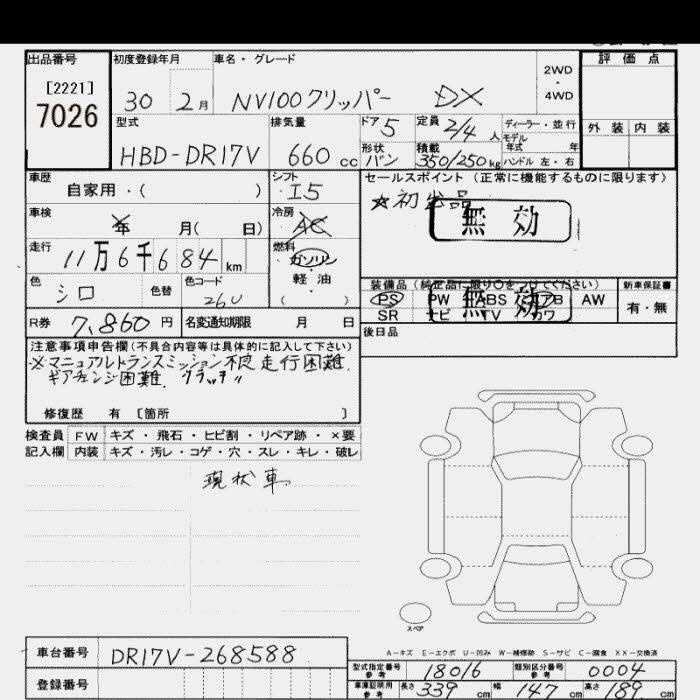 出品番号 初度登録年月 車名・グレード 評価点
[2221]
7026
30 2月 NV100クリッパー DX
2WD
・
4WD
型式 排気量 ドア 5 定員 2/4 人 ディーラー・並行 外装 内装
モデル年式 年
HBD-DR17V 660 cc 形状 バン 積載 350/250 kg ハンドル 左・右
車歴 シフト セールスポイント (正常に機能するものに限ります)
自家用・( ) I5
☆初出品
無効
車検 年 月( 日) 冷房 AC
走行 11万6千684 km 燃料 ガソリン
・
軽油
( )
色 シロ 色替 色コード 26U
装備品 (純正品に限り○をつけてください) 新車保証書
PS PW ABS エアB AW 有・無
SR ナビ TV カワ
無効
R券 7,860円 名変通知期限 月 日
後日品
注意事項申告欄(不具合内容等は具体的に記入して下さい)
※マニュアルトランスミッション不良 走行困難
ギアチェンジ困難. クラッチ〃
修復歴 有 [箇所 ]
検査員 FW キズ・飛石・ヒビ割・リペア跡・×要
記入欄 内装 キズ・汚レ・コゲ・穴・スレ・キレ・破レ
現状車
スペア
A-キズ E-エクボ U-凹み W-補修跡 S-サビ C-腐食 XX-交換済
車台番号 DR17V-268588
型式指定番号 参考 18016 類別区分番号 参考 0004
登録番号
車庫証明用 参考 長さ 339 cm 幅 147 cm 高さ 189 cm